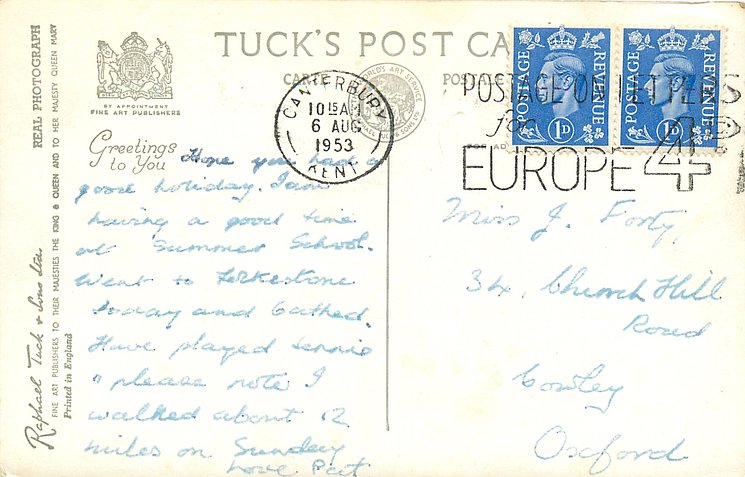 TUCK'S POST CA
CARTE
POSTALE
BY APPOINTMENT
FINE ART PUBLISHERS
REAL PHOTOGRAPH
FINE ART PUBLISHERS TO THEIR MAJESTIES THE KING & QUEEN AND TO HER MAJESTY QUEEN MARY
Raphael Tuck & Sons Ltd.
Printed in England
CANTERBURY
10 15 AM
6 AUG
1953
KENT
WORLD'S ART SERVICE
POSTAGE REVENUE
1D
POSTAGE REVENUE
1D
POSTAGE ON LETTERS
for
EUROPE 4D
Greetings
to You
Hope you had a
good holiday. I am
having a good time
at Summer School.
Went to Folkestone
today and bathed.
Have played tennis
" please note I
walked about 12
miles on Sunday
Love Pat
Miss J. Forty,
34, Church Hill
Road
Cowley
Oxford